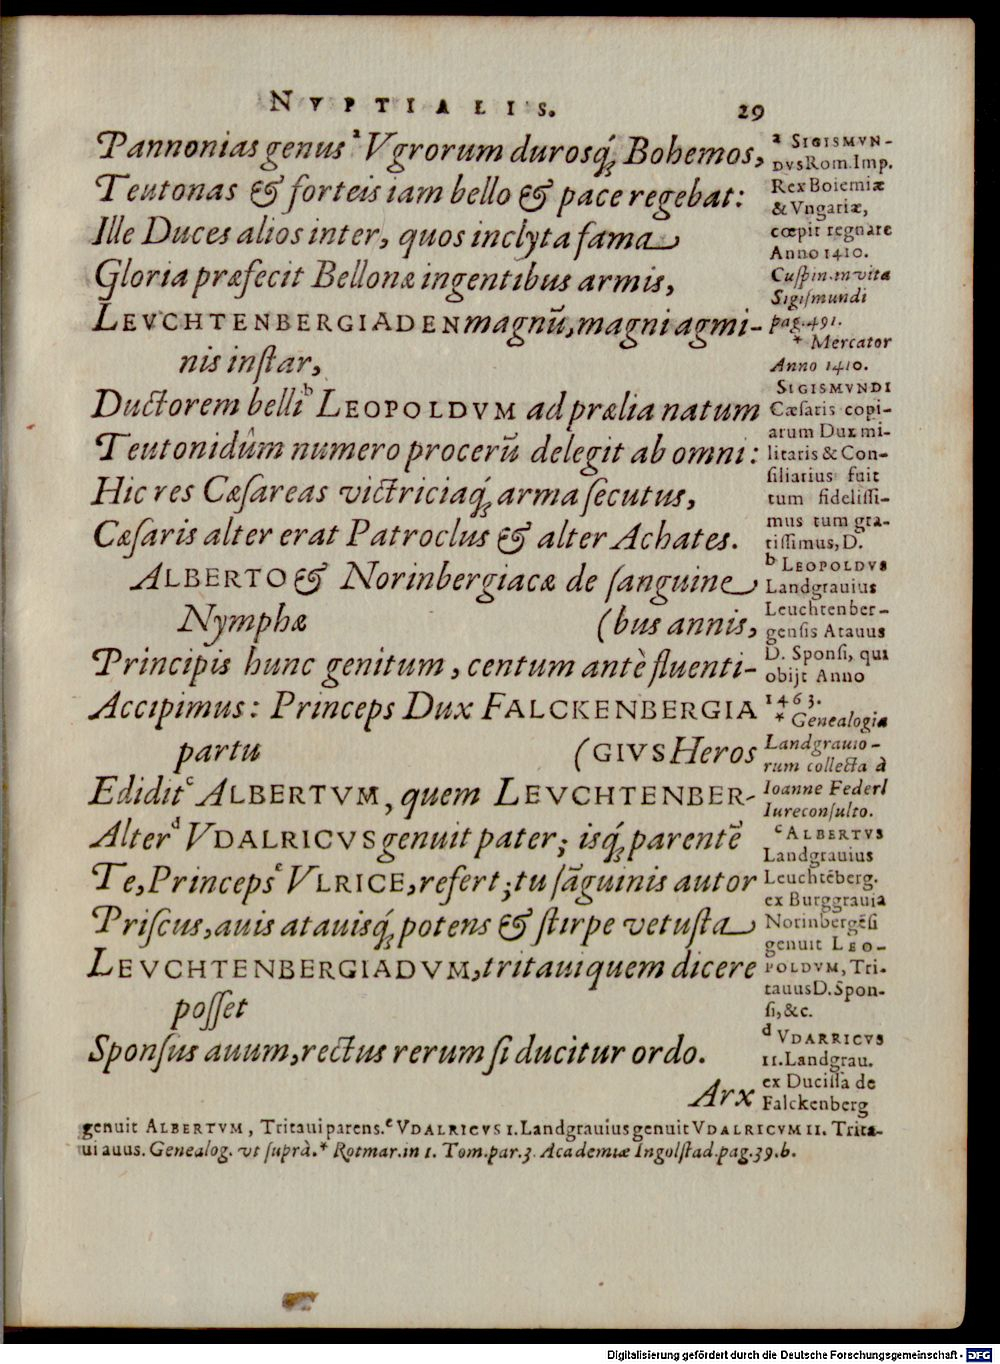 NVPTIALIS. 29
Pannonias genus ᵃ Vgrorum durosq́; Bohemos,
Teutonas & forteis iam bello & pace regebat:
Ille Duces alios inter, quos inclyta fama
Gloria præfecit Bellonæ ingentibus armis,
LEVCHTENBERGIADEN magnū, magni agmi-
nis inſtar,
Ductorem belli ᵇ LEOPOLDVM ad prælia natum
Teutonidûm numero procerū delegit ab omni:
Hic res Cæſareas victriciaq́; arma ſecutus,
Cæſaris alter erat Patroclus & alter Achates.
ALBERTO & Norinbergiacæ de ſanguine
Nymphæ (bus annis,
Principis hunc genitum, centum antè fluenti-
Accipimus: Princeps Dux FALCKENBERGIA
partu (GIVS Heros
Edidit ᶜ ALBERTVM, quem LEVCHTENBER-
Alter ᵈ VDALRICVS genuit pater; isq́; parentē
Te, Princeps ᵉ VLRICE, refert; tu ſāguinis autor
Priſcus, auis atauisq́; potens & ſtirpe vetuſta
LEVCHTENBERGIADVM, tritaui quem dicere
poſſet
Sponſus auum, rectus rerum ſi ducitur ordo.
Arx
ᵃ SIGISMVN-
DVS Rom. Imp.
Rex Boiemiæ
& Vngariæ,
cœpit regnare
Anno 1410.
Cuſpin. in vita
Sigiſmundi
pag. 491.
* Mercator
Anno 1410.
SIGISMVNDI
Cæſaris copi-
arum Dux mi-
litaris & Con-
ſiliarius fuit
tum fideliſſi-
mus tum gra-
tiſſimus, D.
ᵇ LEOPOLDVS
Landgrauius
Leuchtenber-
genſis Atauus
D. Sponſi, qui
obijt Anno
1463.
* Genealogia
Landgrauio-
rum collecta à
Ioanne Federl
Iureconſulto.
ᶜ ALBERTVS
Landgrauius
Leuchtēberg.
ex Burggrauia
Norinbergēſi
genuit LEO-
POLDVM, Tri-
tauus D. Spon-
ſi, &c.
ᵈ VDARRICVS
II. Landgrau.
ex Duciſſa de
Falckenberg
genuit ALBERTVM, Tritaui parens. ᵉ VDALRICVS I. Landgrauius genuit VDALRICVM II. Trita-
ui auus. Genealog. vt ſuprà. * Rotmar. in 1. Tom. par. 3. Academiæ Ingolſtad. pag. 39. b.
Digitalisierung gefördert durch die Deutsche Forschungsgemeinschaft - DFG